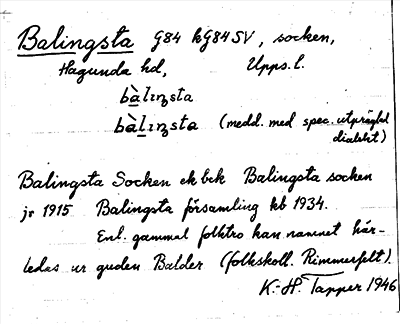 Balingsta G84 kG84SV, socken,
Hagunda hd, Upps. l.
bàlıŋsta
bàlıŋsta (medd. med spec. utpräglad
dialekt)
Balingsta Socken ek bek Balingsta socken
jr 1915 Balingsta församling kb 1934.
Enl. gammal folktro kan namnet här-
ledas ur guden Balder (folkskoll. Rimmerfelt).
K.-H. Tapper 1946